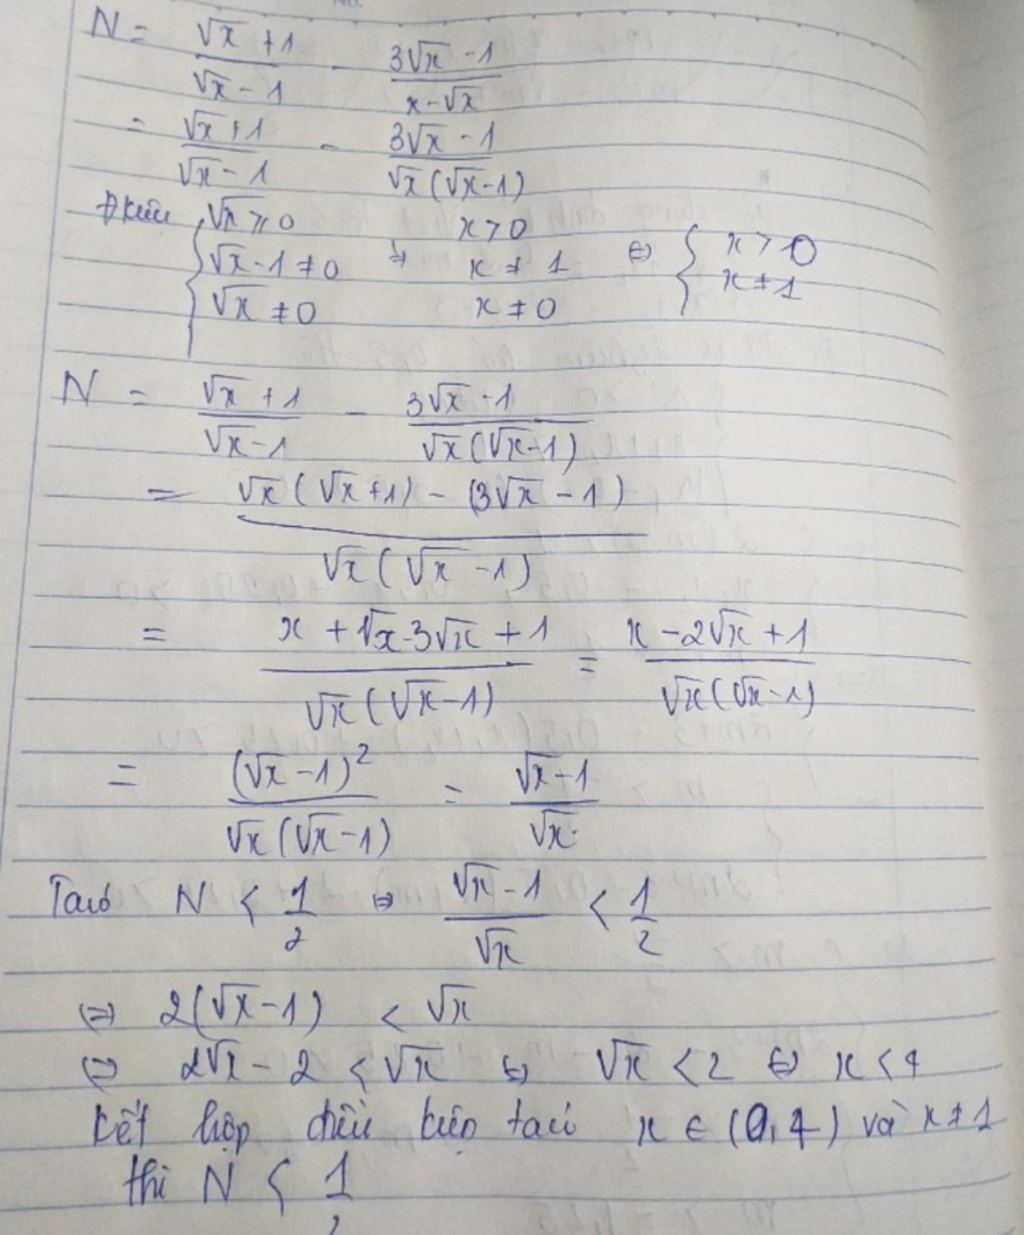 N = (√x + 1)/(√x - 1) - (3√x - 1)/(x - √x)
= (√x + 1)/(√x - 1) - (3√x - 1)/(√x(√x - 1))
Đkiện { √x ≥ 0 x > 0
√x - 1 ≠ 0 ⇒ x ≠ 1 ⇔ { x > 0
√x ≠ 0 x ≠ 0 x ≠ 1
N = (√x + 1)/(√x - 1) - (3√x - 1)/(√x(√x - 1))
= (√x(√x + 1) - (3√x - 1))/(√x(√x - 1))
= (x + √x - 3√x + 1)/(√x(√x - 1)) = (x - 2√x + 1)/(√x(√x - 1))
= (√x - 1)²/(√x(√x - 1)) = (√x - 1)/√x
Ta có N < 1/2 ⇔ (√x - 1)/√x < 1/2
⇔ 2(√x - 1) < √x
⇔ 2√x - 2 < √x ⇔ √x < 2 ⇔ x < 4
Kết hợp điều kiện ta có x ∈ (0,4) và x ≠ 1
thì N < 1/2